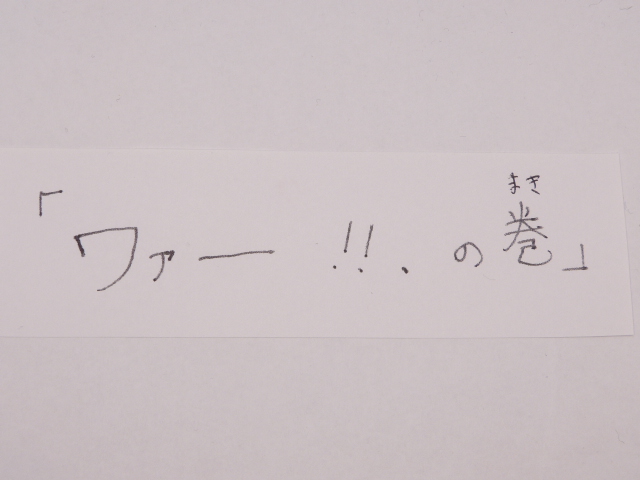 「ワァー!!.の巻」
まき